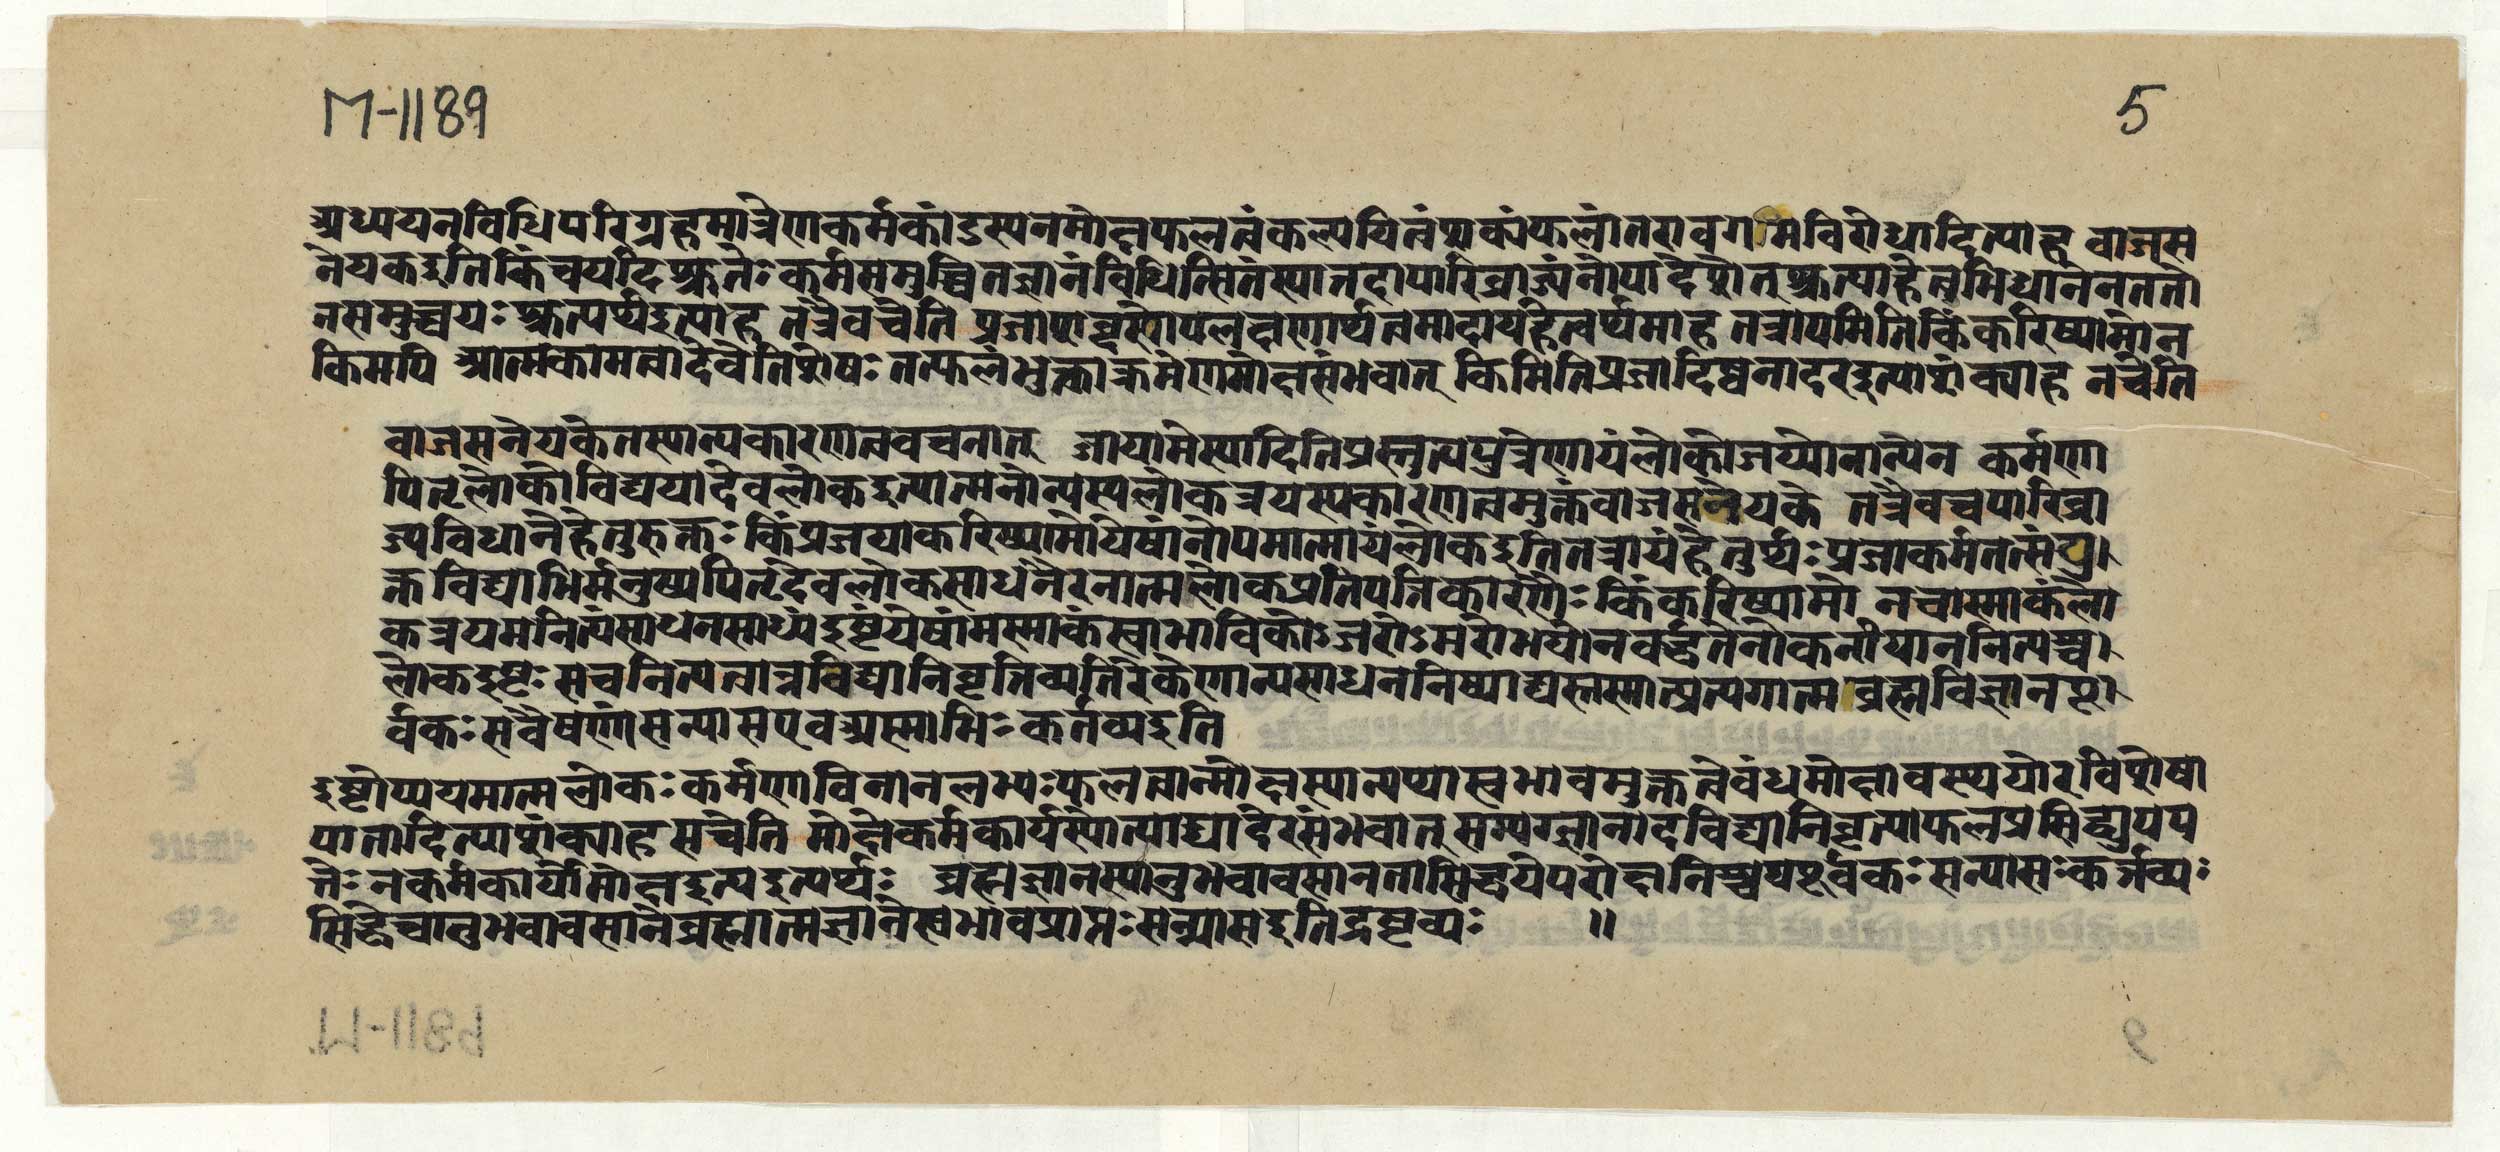 M-1189
5
अध्ययनविधिपरिग्रहमात्रेणकर्मकांडस्यनमोक्षफलत्वंकल्पयितुंशक्यंफलांतरावगमविरोधादित्याह वाजस
नेयकइति किंचयदिश्रुतेः कर्मसमुच्चितज्ञानंविधित्सितंस्यात्तदापारिव्राज्यंनोपदिशेत् श्रुत्याहेत्वभिधानेनततो
नसमुच्चयः श्रुत्यर्थइत्याह तत्रैवचेति प्रजाशब्दस्योपलक्षणार्थत्वमादायहेत्वर्थमाह तत्रायमिति किंकरिष्यामोन
किमपि आत्मकामत्वादेवेतिशेषः तत्फलंभुक्त्वाक्रमेणमोक्षसंभवात् किमितिप्रजादिष्वनादरइत्याशंक्याह नचेति
वाजसनेयकेतस्यान्यकारणत्ववचनात् जायामेस्यादितिप्रस्तुत्यपुत्रेणायंलोकोजय्योनान्येन कर्मणा
पितृलोकोविद्ययादेवलोकइत्यात्मनोन्यस्यलोकत्रयस्यकारणत्वमुक्तंवाजसनेयके तत्रैवचपारिव्रा
ज्यविधानेहेतुरुक्तः किंप्रजयाकरिष्यामोयेषांनोयमात्मायंलोकइतितत्रायंहेत्वर्थः प्रजाकर्मतत्संयु
क्तविद्याभिर्मनुष्यपितृदेवलोकसाधनैरनात्मलोकप्रतिपत्तिकारणैः किंकरिष्यामो नचास्माकंलो
कत्रयमनित्यंसाधनसाध्यंइष्टंयेषामस्माकंस्वाभाविकोऽजरोऽमरोभयोनवर्द्धतेनोकनीयाननित्यश्च
लोकइष्टः सचनित्यत्वान्नविद्यानिवृत्तिव्यतिरेकेणान्यसाधननिष्पाद्यस्तस्मात्प्रत्यगात्मब्रह्मविज्ञानपू
र्वकः सर्वैषणासन्यासएवअस्माभिः कर्तव्यइति
इष्टोप्ययमात्मलोकः कर्मणाविनानलभ्यः फलत्वान्मोक्षस्यान्यथास्वभावमुक्तत्वेबंधमोक्षावस्थयोरविशेषा
पातादित्याशंक्याह सचेति मोक्षेकर्मकार्यस्योत्पाद्यादेरसंभवात् सम्यग्ज्ञानादविद्यानिवृत्त्याफलप्रसिद्ध्युपप
त्तेः नकर्मकार्योमोक्षइत्यइत्यर्थः ब्रह्मज्ञानस्यानुभवावसानतासिद्धयेपरोक्षनिश्चयपूर्वकः सन्यासः कर्त्तव्यः
सिद्धेचानुभवावसानेब्रह्मात्मज्ञानेस्वभावप्राप्तः सन्यासइतिद्रष्टव्यः ॥